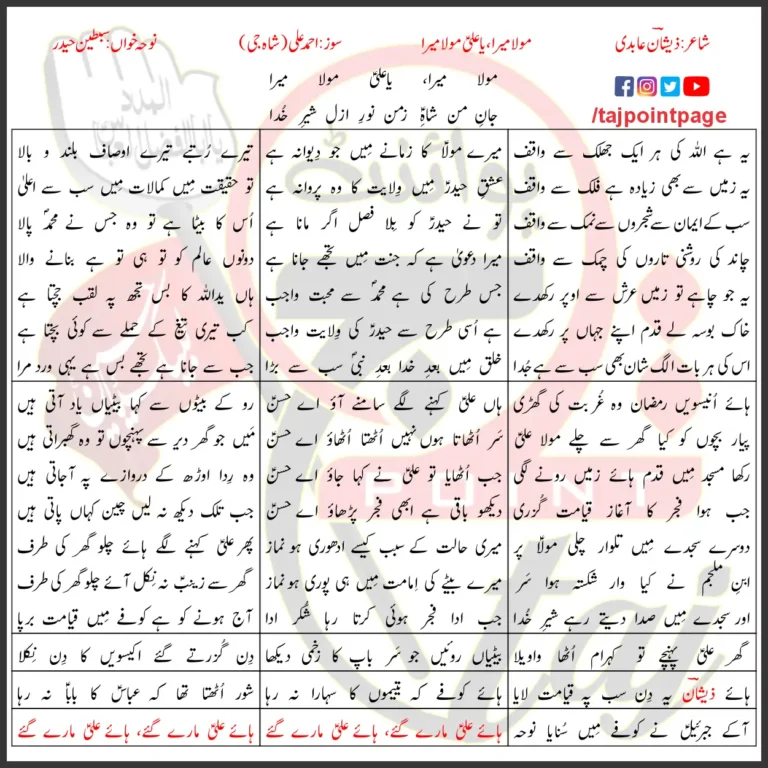 شاعر: ذیشان عابدی
مولا میرا، یا علیؑ مولا میرا
سوز: احمد علی (شاہ جی)
نوحہ خواں: سبطین حیدر
مولا میرا، یاعلیؑ مولا میرا
جانِ من شاہِؑ زمن نورِ ازل شیرِ خُدا
/tajpointpage
یہ ہے اللہ کی ہر ایک جھلک سے واقف
یہ زمیں سے بھی زیادہ ہے فلک سے واقف
سب کے ایمان سے شجروں سے نمک سے واقف
چاند کی روشنی تاروں کی چمک سے واقف
یہ جو چاہے تو زمیں عرش سے اوپر رکھدے
خاک بوسہ لے قدم اپنے جہاں پر رکھدے
اس کی ہر بات الگ شان بھی سب سے ہے جُدا
میرے مولاؑ کا زمانے میں جو دِیوانہ ہے
عشقِ حیدرؑ میں وِلایت کا وہ پروانہ ہے
تو نے حیدرؑ کو بِلا فصل اگر مانا ہے
میرا دعویٰ ہے کہ جنت میں تجھے جانا ہے
جس طرح کی ہے محمدؐ سے محبت واجب
ہے اُسی طرح سے حیدرؑ کی وِلایت واجب
خلق میں بعدِ خدا بعدِ نبیؐ سب سے بڑا
تیرے رُتبے تیرے اوصاف بلند و بالا
تو حقیقت میں کمالات میں سب سے اعلیٰ
اُس کا بیٹا ہے تو وہ جس نے محمدؐ پالا
دونوں عالم کو تو ہی تو ہے بنانے والا
ہاں یداللہ کا بس تجھ پہ لقب جچتا ہے
کب تیری تیغ کے حملے سے کوئی بچتا ہے
جب سے جانا ہے تجھے بس ہے یہی ورد مرا
ہائے اُنیسویں رمضان وہ غُربت کی گھڑی
پیار بچوں کو کیا گھر سے چلے مولا علیؑ
رکھا مسجد میں قدم ہائے زمیں رونے لگی
جب ہوا فجر کا آغاز قیامت گُزری
دوسرے سجدے میں تلوار چلی مولاؑ پر
ابنِ ملجم نے کیا وار شکستہ ہوا سَر
اور سجدے میں صدا دیتے رہے شیرِ خُدا
ہاں علیؑ کہنے لگے سامنے آؤ اے حسنؑ
سَر اُٹھاتا ہوں نہیں اُٹھتا اُٹھاؤ اے حسنؑ
جب اُٹھایا تو علیؑ نے کہا جاؤ اے حسنؑ
دیکھو باقی ہے ابھی فجر پڑھاؤ اے حسنؑ
میری حالت کے سبب کیسے ادھوری ہو نماز
میرے بیٹے کی اِمامت میں ہی پوری ہو نماز
جب ادا فجر ہوئی کرتا رہا شُکر ادا
رو کے بیٹوں سے کہا بیٹیاں یاد آتی ہیں
مَیں جو گھر دیر سے پہنچوں تو وہ گھبراتی ہیں
وہ رِدا اوڑھ کے دروازے پہ آجاتی ہیں
جب تلک دیکھ نہ لیں چین کہاں پاتی ہیں
پھر علیؑ کہنے لگے ہائے چلو گھر کی طرف
گھر سے زینبؑ نہ نِکل آئے چلو گھر کی طرف
آج ہونے کو ہے کوفے میں قیامت برپا
گھر علیؑ پہنچے تو کہرام اُٹھا واویلا
بیٹیاں روئیں جو سَر باپ کا زخمی دیکھا
دِن گُزرتے گئے اکیسویں کا دِن نِکلا
ہائے ذیشانؔ یہ دِن سب پہ قیامت لایا
ہائے کوفے کہ یتیموں کا سہارا نہ رہا
شور اُٹھتا تھا کہ عباسؑ کا باباؑ نہ رہا
آکے جبرئیلؑ نے کوفے میں سُنایا نوحہ
ہائے علیؑ مارے گئے، ہائے علیؑ مارے گئے
ہائے علیؑ مارے گئے، ہائے علیؑ مارے گئے
POINT
taj